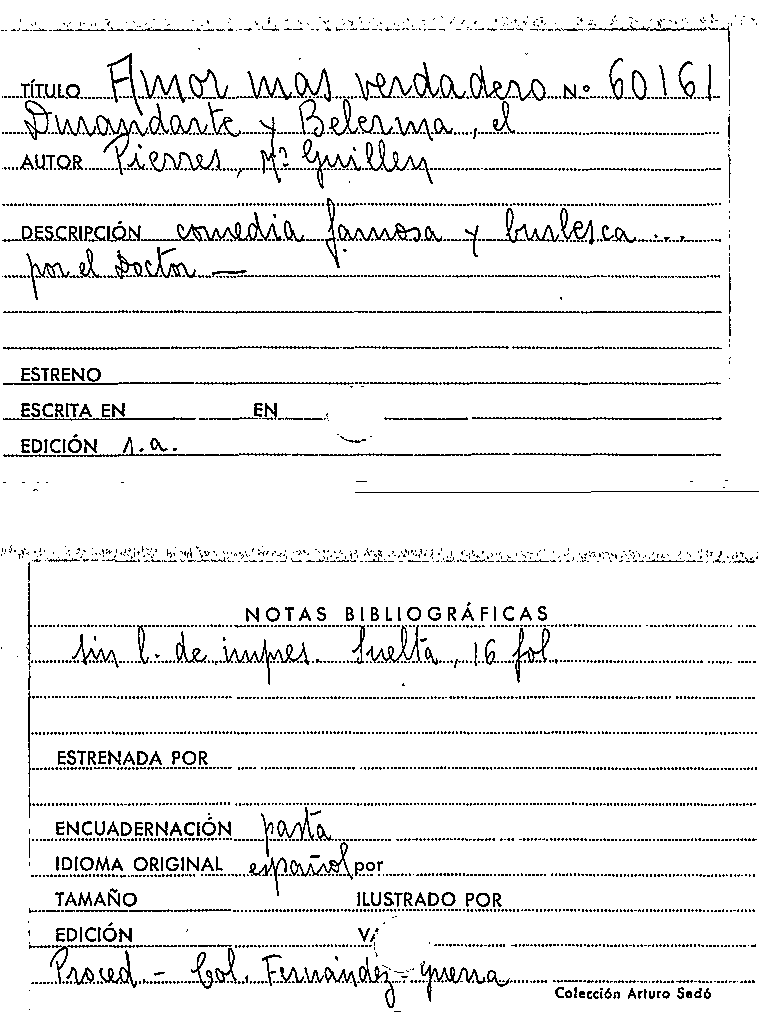 TÍTULO Amor mas verdadero Nº 60161
Durandarte y Belerma, el
AUTOR Pierres, Mº Guillen
DESCRIPCIÓN comedia famosa y burlesca ...
por el Doctor —
ESTRENO
ESCRITA EN EN
EDICIÓN s.a.
NOTAS BIBLIOGRÁFICAS
sin l. de impres. Suelta, 16 fol.
ESTRENADA POR
ENCUADERNACIÓN pasta
IDIOMA ORIGINAL español por
TAMAÑO ILUSTRADO POR
EDICIÓN
Proced. - Col. Fernández-guerra
Colección Arturo Sedó